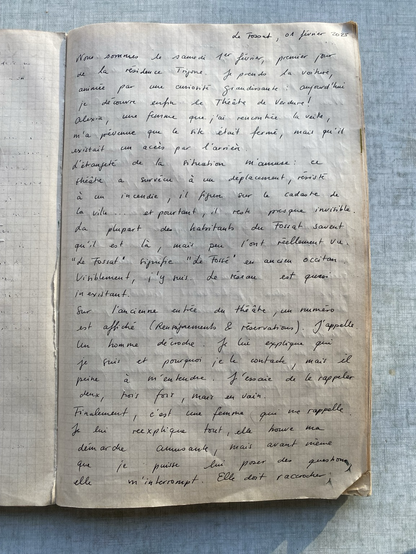 Le Fossat, 01 février
Nous sommes le samedi 1er février, premier jour
de la résidence Je prends la voiture,
animée par une curiosité grandissante aujourd'hui
je découvre enfin le Théâtre de Verdure!
Alexia, une femme que j'ai rencontrée la veille,
m'a prévenue que le site était fermé, mais qu'il
existait un accès par l'arrière
d'étangeté de la situation m'amuse : ce
théâtre a survécu à un déplacement, résisté
à un incendie, il figure sur le cadastre de
la ville... et pourtant, il reste presque invisible.
La plupart des habitants du Fossat savent
qu'il est là, mais peu l'ont réellement vu.
"Le Fossat" signifie "Le Fossé" en ancien occitan.
Visiblement, j'y suis. Le réseau est quasi
inexistant.
Sur l'ancienne entrée du théâtre, un numéro
est affiché (Renseignements & réservations). J'appelle
Un homme décroche. Je lui explique qui
je suis et pourquoi je le contacte, mais il
peine à m'entendre. J'essaie de le rappeler
deux, trois fois, mais en vain.
Finalement, c'est une femme qui me rappelle.
Je lui réexplique tout, elle trouve ma
démarche amusante, mais avant même
que je puisse lui poser des questions,
elle m'interrompt. Elle doit raccrocher